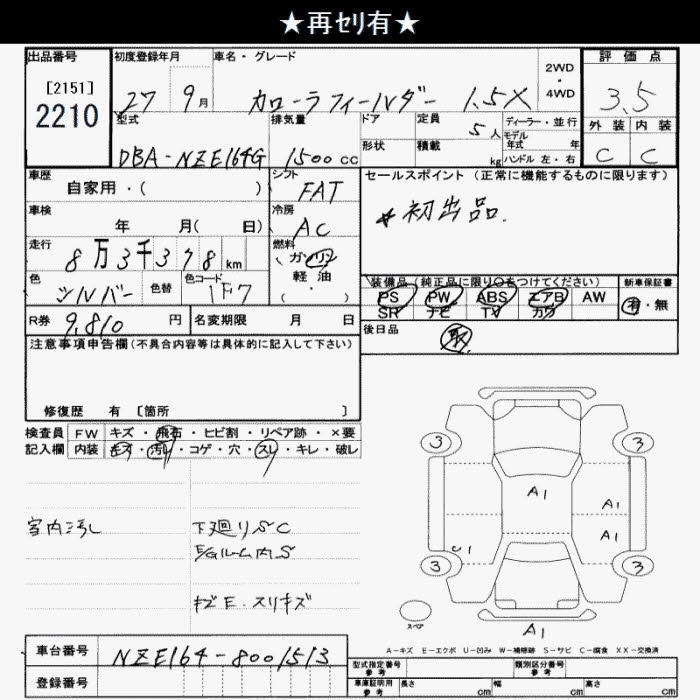 ★再ｾﾘ有★
出品番号 初度登録年月 車名・グレード 2WD・4WD 評価点
[2151]
2210
27 9月 カローラフィールダー 1.5X 3.5
型式 排気量 ドア 定員 5人 ディーラー・並行 外装 内装
モデル年式 年
DBA-NZE164G 1500cc 形状 積載 kg ハンドル 左・右 C C
車歴 シフト セールスポイント (正常に機能するものに限ります)
自家用・( ) FAT
車検 冷房 *初出品.
年 月( 日) AC
走行 燃料
8万3千378km ガソリン
軽油
・( )
色 色替 色コード 装備品(純正品に限り○をつけてください) 新車保証書
シルバー 1F7 PS PW ABS エアB AW 有・無
SR ナビ TV カワ
R券 9,810円 名変期限 月 日 後日品 取
注意事項申告欄(不具合内容等は具体的に記入して下さい)
修復歴 有 [箇所 ]
検査員 FW キズ・飛石・ヒビ割・リペア跡・×要
記入欄 内装 キズ・汚れ・コゲ・穴・スレ・キレ・破レ
3 3
A1 A1
A1
室内汚れ 下廻りSC
E/GルームS内S
キズE.スリキズ
3 3
スペア A1
A-キズ E-エクボ U-凹み W-補修跡 S-サビ C-腐食 XX-交換済
車台番号 NZE164-8001513
型式指定番号 参考 類別区分番号 参考
登録番号 車庫証明用 参考 長さ cm 幅 cm 高さ cm